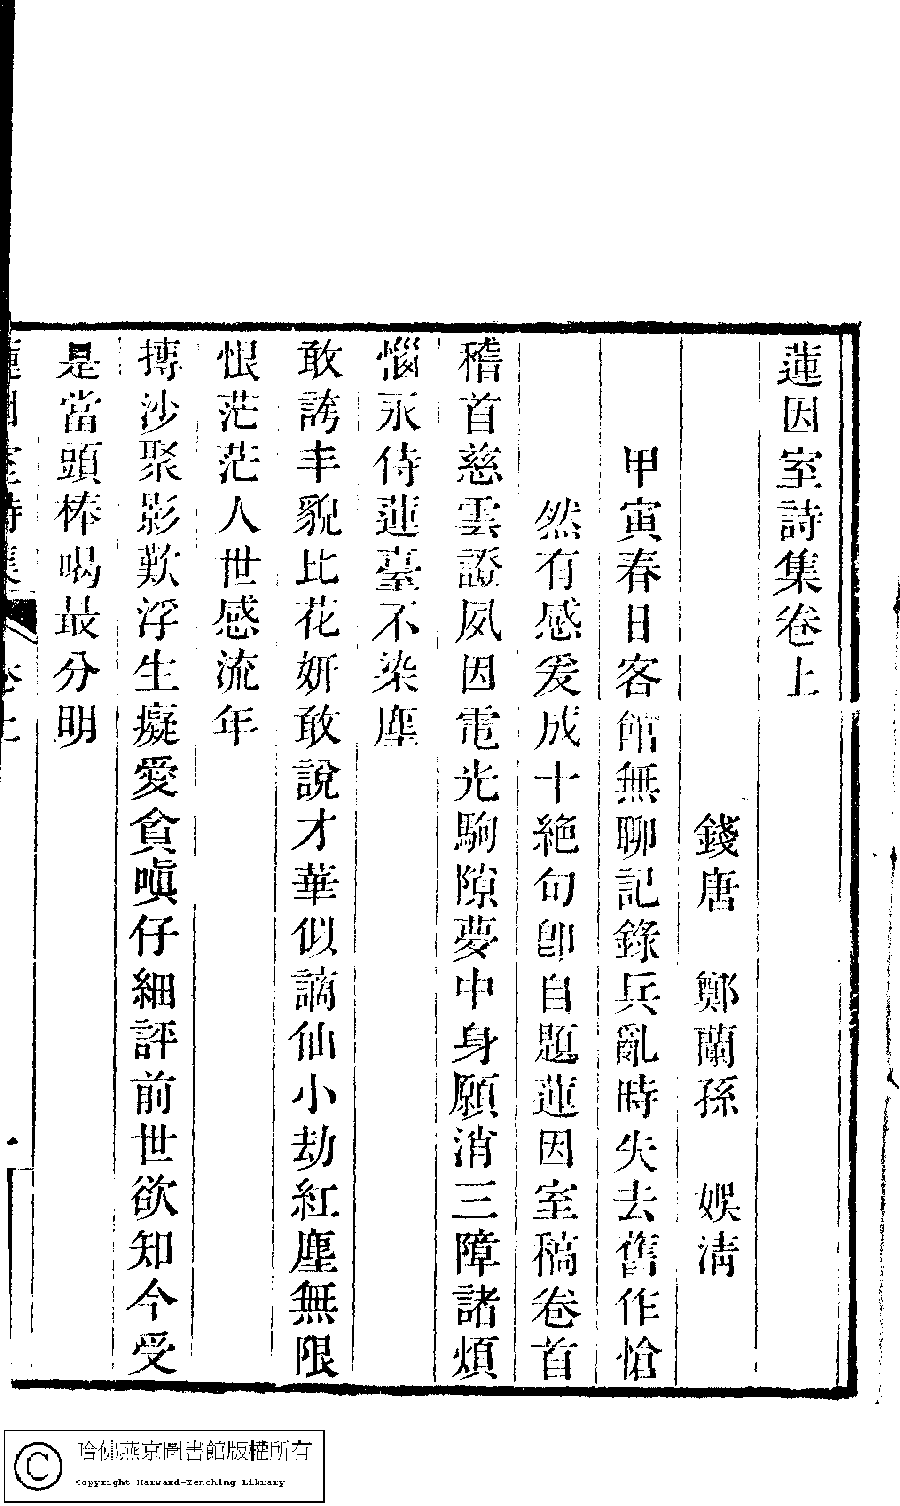 蓮因室詩集卷上
錢唐　鄭蘭孫　娛淸
甲寅春日客館無聊記錄兵亂時失去舊作愴
然有感爰成十絕句卽自題蓮因室稿卷首
稽首慈雲證夙因電光駒隙夢中身願消三障諸煩
惱永侍蓮臺不染塵
敢誇丰貌比花姸敢說才華似謫仙小劫紅塵無限
恨茫茫人世感流年
摶沙聚影歎浮生癡愛貪嗔仔細評前世欲知今受
是當頭棒喝最分明
蓮因室詩集
卷上
一
哈佛燕京圖書館版權所有
Copyright Harward-Yenching Library